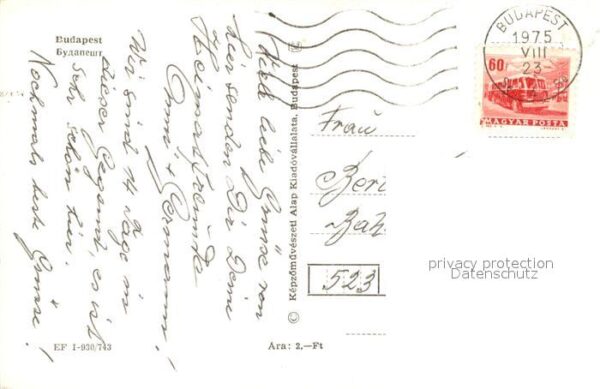 Budapest
Будапешт
Viele liebe Grüsse von
hier senden Dir Deine
Omi + Hermann!
Wir sind 14 Tage in
dieser Gegend, es ist
sehr schön hier.
Nochmals beste Grüsse!
EF I-930/743
Ara: 2,—Ft
© Képzőművészeti Alap Kiadóvállalata, Budapest
BUDAPEST
1975
VIII
23-
60
MAGYAR POSTA
Frau
Beri
Bah
523
privacy protection
Datenschutz